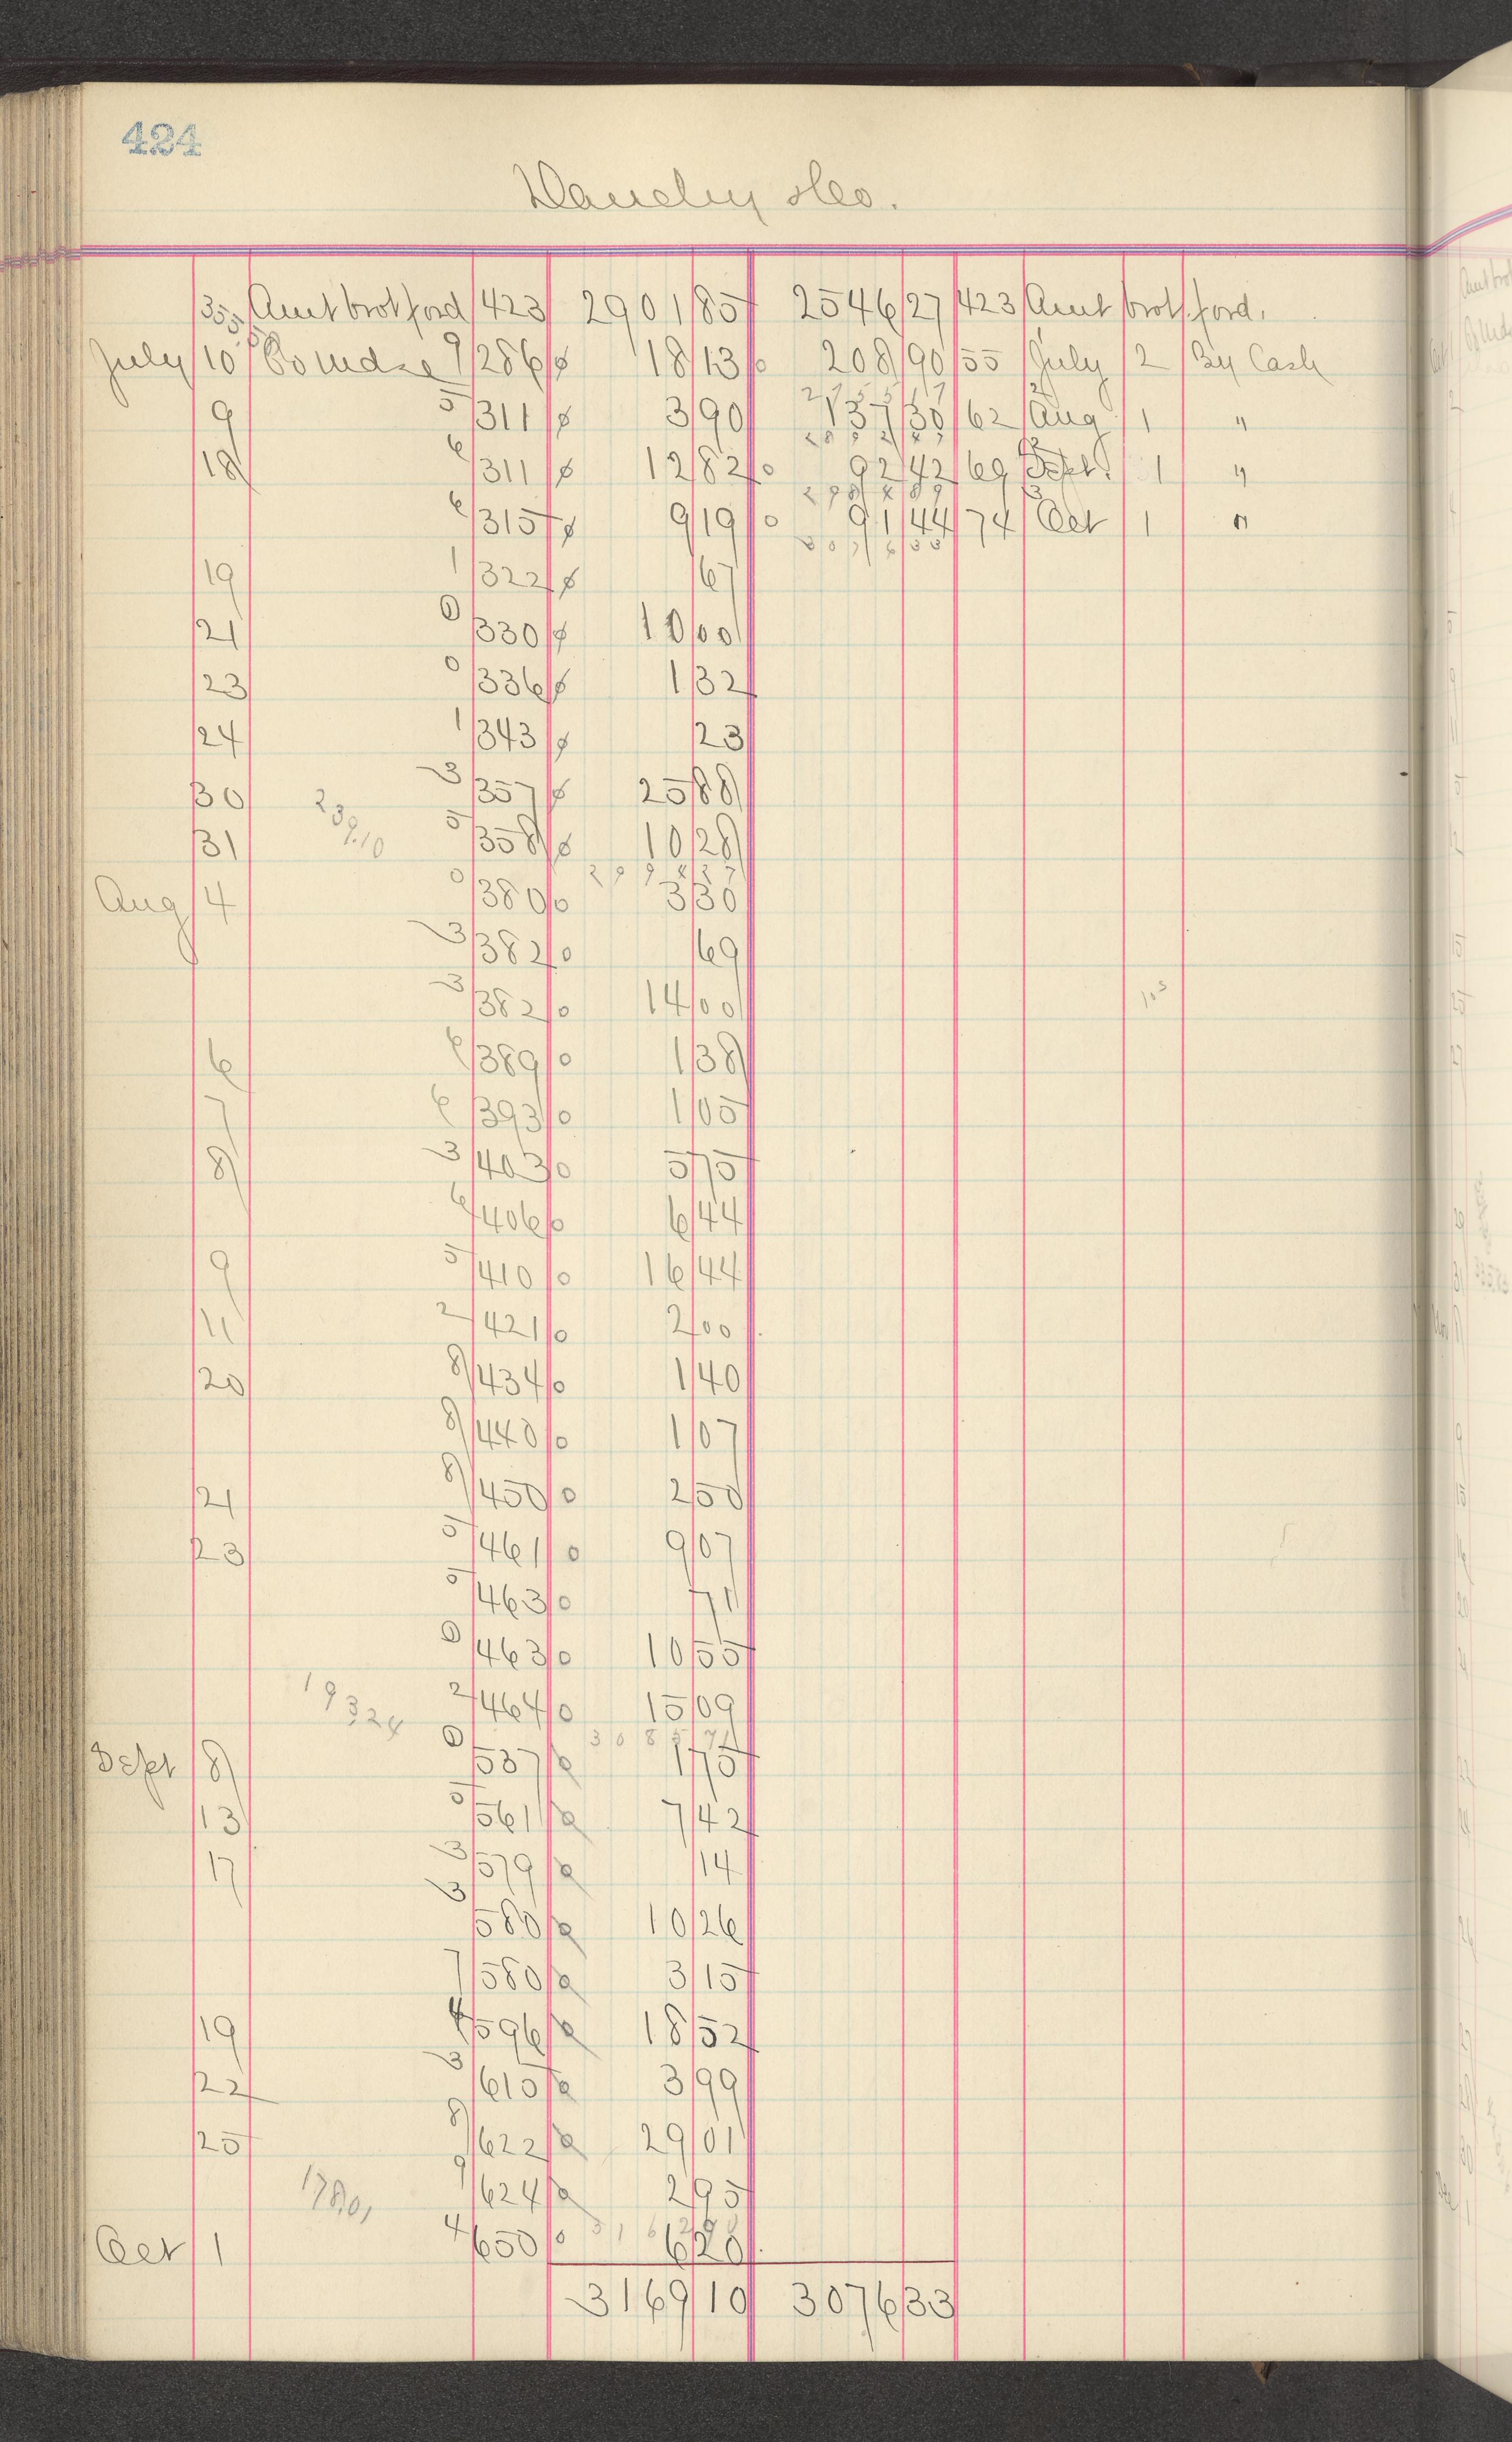 424
Geo.
355.58 Amt brot ford 423 2901 85 2546 27 423 Amt brot. ford.
July 10 To Mdse 9 286 18 13 208 90 55 July 2 By Cash
9 5 311 3 90 137 30 62 Aug 1 "
18 6 311 12 82 92 42 69 Sept. 1 "
6 315 9 19 91 44 74 Oct 1 "
3076 33
19 1 322 67
21 0 330 10 00
23 0 336 1 32
24 1 343 23
30 239.10 3 357 25 88
31 5 358 10 28
2994 37
Aug 4 0 380 3 30
3 382 69
3 382 14 00
6 6 389 1 38
7 6 393 1 05
8 3 403 5 75
6 406 6 44
9 5 410 16 44
11 2 421 2 00
20 8 434 1 40
8 440 1 07
21 8 450 2 50
23 5 461 9 07
5 463 71
0 463 10 55
193.24 2 464 15 09
3085 71
Sept 8 0 537 1 75
13 5 561 7 42
17 3 579 14
3 580 10 26
7 580 3 15
19 4 596 18 52
22 3 615 3 99
25 8 622 29 01
178.01 9 624 2 95
Oct 1 4 650 6 20
3169 10 3076 33